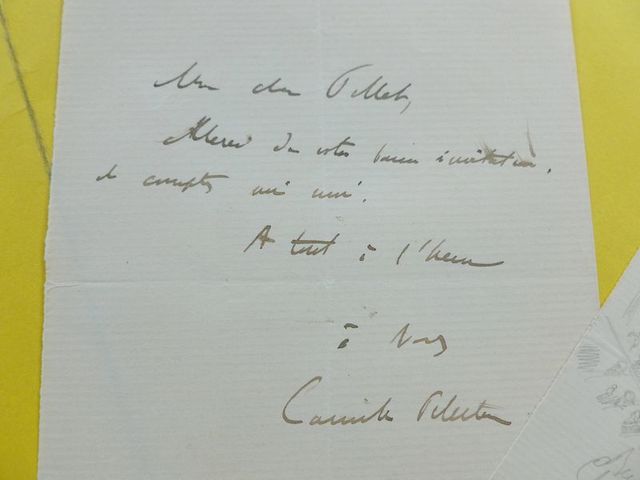 Mon cher Pillet,
Merci de votre bonne invitation.
et comptez
A tout à l'heure
à vous
Camille Pelletan